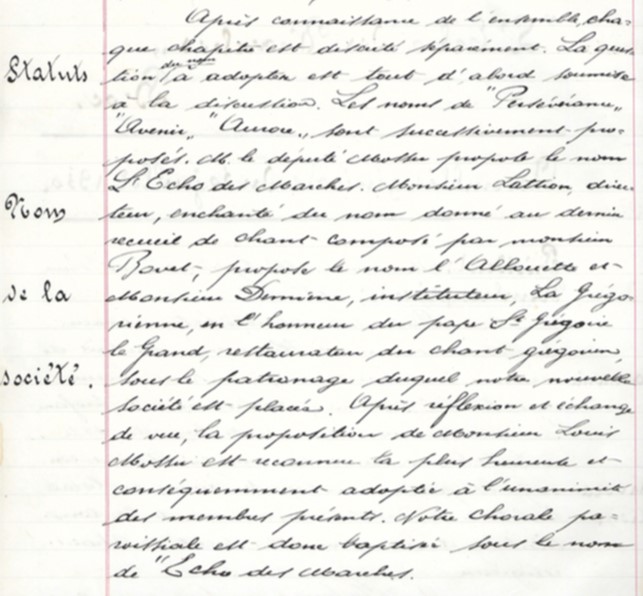 Après connaissance de l'ensemble, cha-
que chapitre est discuté séparément. La ques
Statuts
tion du nom à adopter est tout d'abord soumise
à la discussion. Les noms de "Persévérance„
"Avenir„ "Aurore„ sont successivement pro-
posés. M. le député Mossu propose le nom
L'Echo des Marches. Monsieur Lattion, direc
Nom
teur, enchanté du nom donné au dernier
recueil de chant composé par monsieur
Bovet, propose le nom l'Allouette et
de la
Monsieur Demierre, instituteur, La Grégo
rienne, en l'honneur du pape St Grégoire
le Grand, restaurateur du chant grégorien,
société.
sous le patronage duquel notre nouvelle
société est placée. Après réflexion et échange
de vue, la proposition de Monsieur Louis
Mossu est reconnue la plus heureuse et
conséquemment adoptée à l'unanimité
des membres présents. Notre chorale pa-
roissiale est donc baptisée sous le nom
de "Echo des Marches.